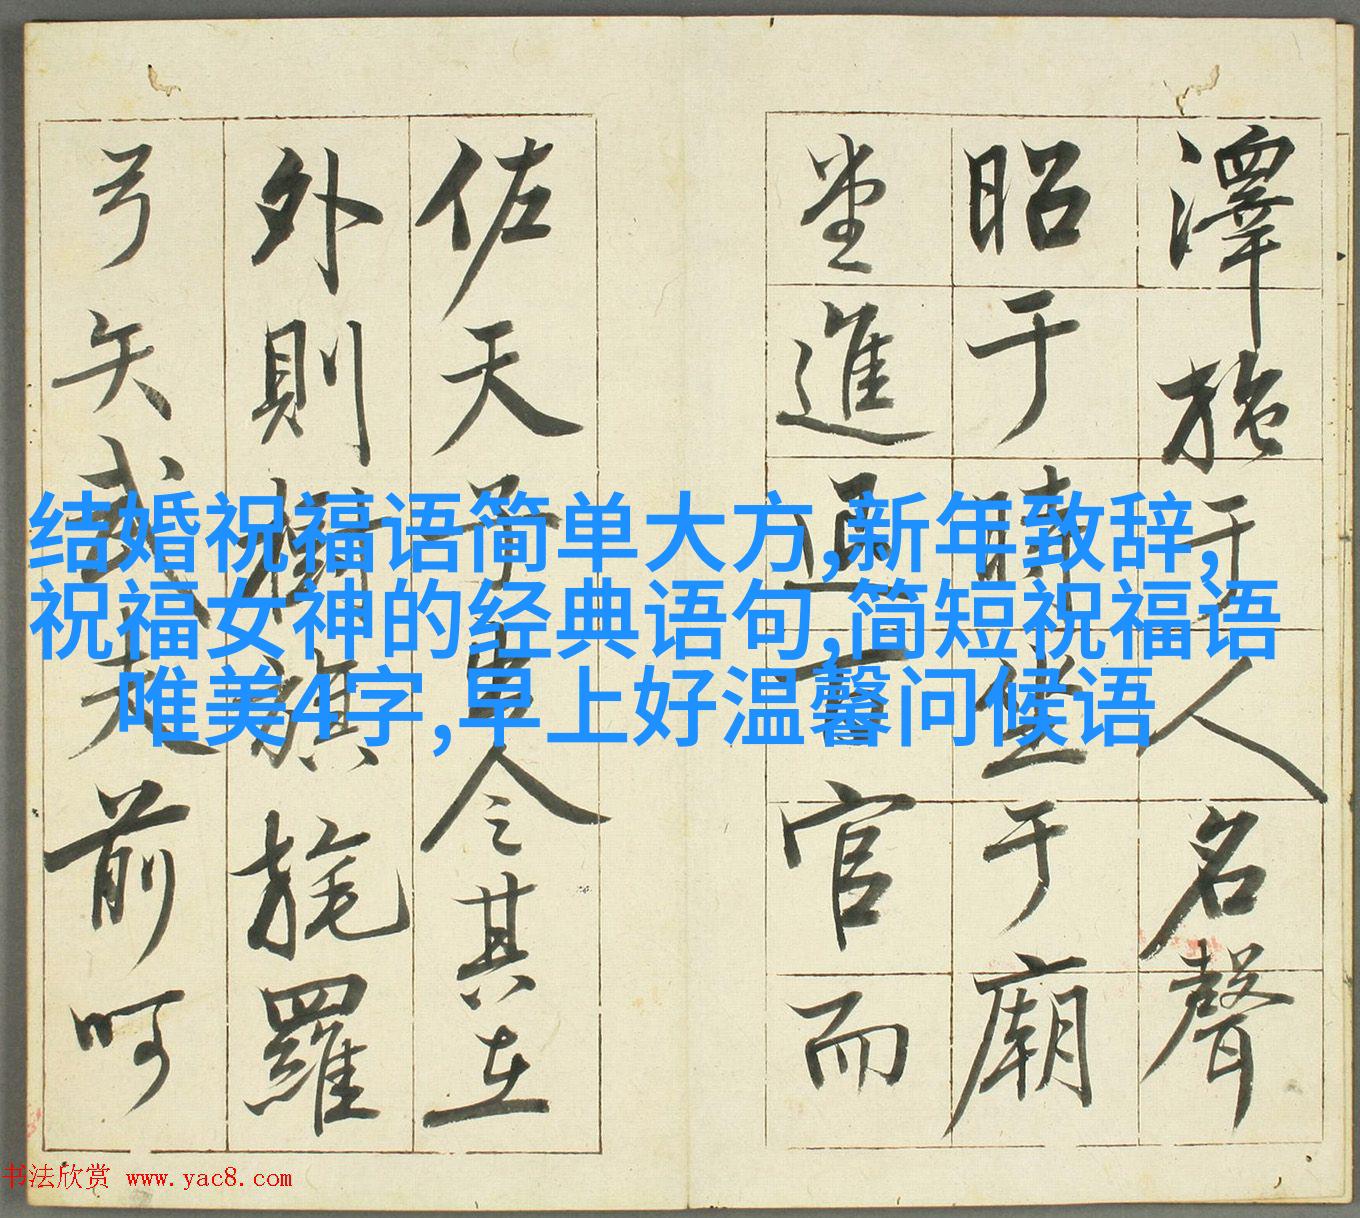 澤施于人名聲
昭于時坐于廟
堂進退百官而
佐天子出令其在
外則樹旗旄羅
弓矢武夫前呵
结婚祝福语简单大方,新年致辞,
祝福女神的经典语句,简短祝福语
唯美4字,早上好温馨问候语
书法欣赏 www.yac8.com